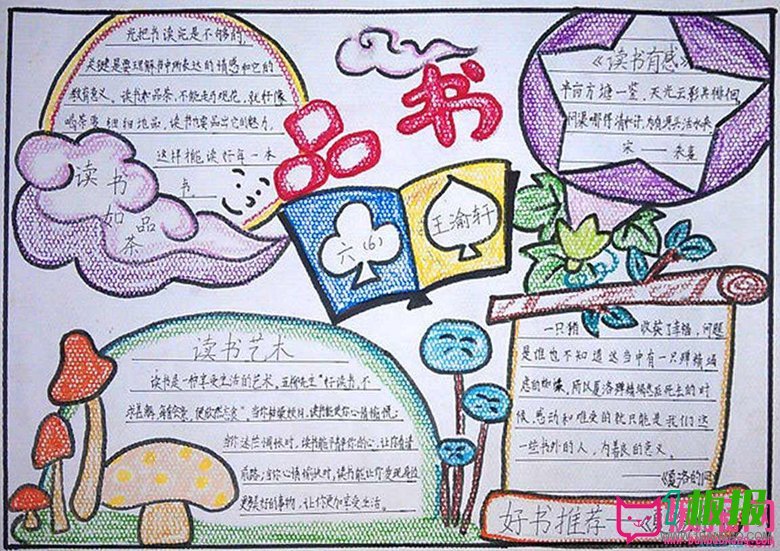 光把书读完是不够的,
关键是要理解书中所表达的情感和它的
教育意义。读书如品茶,不能走马观花,就好像
喝茶要细细地品,读书也要品出它的魅力,
这样才能读好每一本
书
读书
如品
茶
品书
六(6)
王渝轩
《读书有感》
半亩方塘一鉴,天光云影共徘徊
问渠哪得清如许,为有源头活水来
宋——朱熹
读书艺术
读书是一种享受生活的艺术。五柳先生“好读书,不
求甚解,每有会意,便欣然忘食”。当你
读书能使你心情愉悦;
当你迷茫调怅时,读书能平静你的心,让你看清
前路;当你心情愉快时,读书能让你发现身边
更美好的事物,让你更加享受生活。
一只猪
收获了幸福,问题
是谁也不知道这当中有一只蜘蛛
所以夏洛
死去的时
候,感动和难受的就只能是我们这
一些书外的人,为善良的意义。
——《夏洛的网
好书推荐——《夏
板报